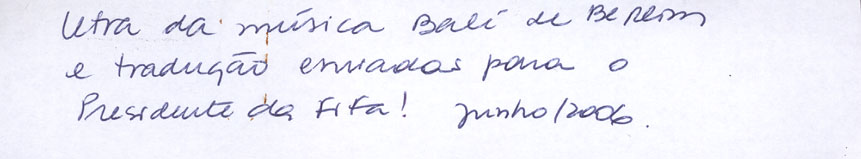 letra da música Balé de Berlim
e tradução enviadas para o
Presidente da Fifa! junho/2006.